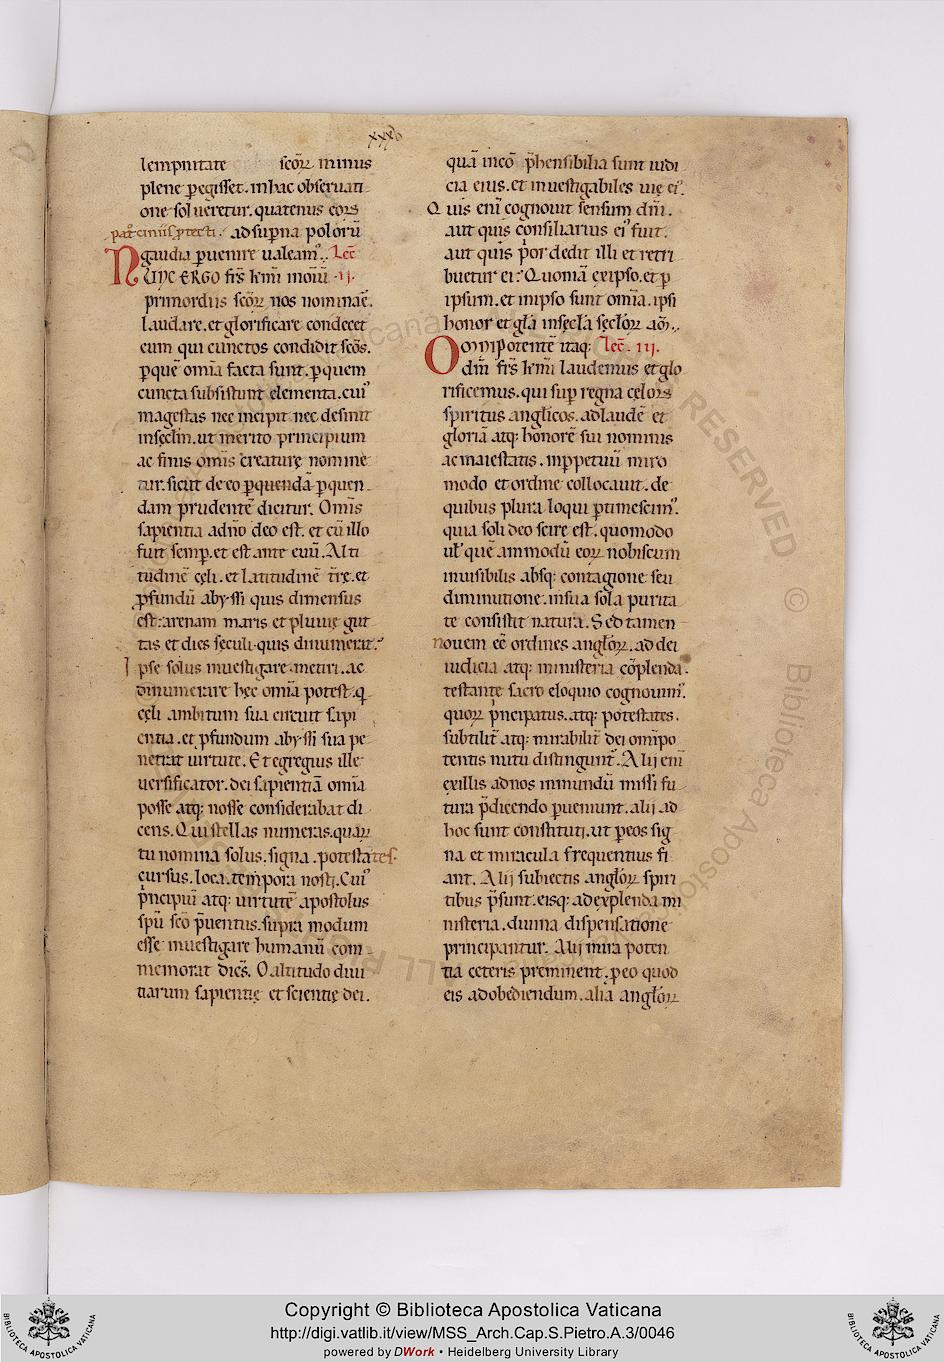 xxxb
lempnitate scōꝝ minus
plene ꝑegisset. in hac obseruati
one solueretur. quatenus eorꝫ
patͣciniis ꝓtecti. ad suꝑna polorū
gaudia ꝑuenire ualeamꝰ. Lēc
NUNC ERGO frs̄ kmī in om̄iū .ii.
primordiis scōꝝ nos nominaē.
laudare. et glorificare condecet
eum qui cunctos condidit scōs.
ꝑquē omīa facta sunt. ꝑquem
cuncta subsistunt elementa. cuiꝰ
magestas nec incipit nec desinit
insecl̄m. ut merito principium
ac finis omīs creaturę nomine
tur. sicut de eo ꝑquendā ꝑquen
dam prudentē dicitur. Omīs
sapientia adn̄o deo est. et cū illo
fuit semꝑ. et est ante euū. Alti
tudinē cęli. et latitudinē tr̄ę. et
ꝓfundū abyssi quis dimensus
est: arenam maris et pluuię gut
tas et dies seculi quis dinumerat:
Ipse solus inuestigare. metiri. ac
dinumerare hęc omīa potest. q̄
cęli ambitum sua circuit sapi
entia. et ꝓfundum abyssi sua pe
netrat uirtute. Et egregius ille
uersificator. dei sapientiā omīa
posse atq: nosse considerabat di
cens. Qui stellas numeras. quaꝝ
tu nomina solus. signa. potestates.
cursus. loca. tempora nosti. Cuiꝰ
p̄ncipiū atq: uirtutē apostolus
spū scō p̄uentus. supra modum
esse inuestigare humanū com
memorat dicēs. O altitudo diui
tiarum sapientię et scientię dei.
quā incō p̄hensibilia sunt iudi
cia eius. et inuestigabiles uię eiꝰ.
Quis enī cognouit sensum dn̄i.
aut quis cōnsiliarius eiꝰ fuit.
aut quis p̄or dedit illi et retri
buetur ei: Quoniā ex ipso. et ꝑ
ipsum. et in ipso sunt omīa. ipsi
honor et gl̄a insecl̄a secl̄oꝝ am̄.
OOMNIPOTENTĒ itaq: Lēc. iii.
dm̄ frs̄ kmī laudemus et glo
rificemus. qui suꝑ regna cęlorꝫ
spiritus angl̄icos. ad laudē et
gloriā atq: honorē sui nominis
ac maiestatis. inꝑpetuū miro
modo et ordine collocauit. de
quibus plura loqui ꝑtimescimꝰ.
quia soli deo scire est. quomodo
ul̄ quē ammodū eoꝝ nobiscum
inuisibilis absq: contagione seu
diminutione. in sua sola purita
te consistit natura. Sed tamen
nouem eē ordines angl̄oꝝ. ad dei
iudicia atq: ministeria cōplenda.
testante sacro eloquio cognouimꝰ.
quoꝝ p̄ncipatus. atq: potestates.
subtilit̄ atq: mirabilit̄ dei om̄ipo
tentis nutu distingunt̄. Alij enī
ex illis ad nos in mundū missi fu
tura p̄dicendo ꝑueniunt. alij ad
hoc sunt constituti. ut ꝑ eos sig
na et miracula frequentius fi
ant. Alij subiectis angl̄oꝝ spiri
tibus p̄sunt. eisq: ad explenda mi
nisteria. diuina dispensatione
principantur. Alij mira poten
tia ceteris preminent. ꝑ eo quod
eis ad obediendum. alia angl̄oꝝ
Copyright © Biblioteca Apostolica Vaticana
http://digi.vatlib.it/view/MSS_Arch.Cap.S.Pietro.A.3/0046
powered by DWork • Heidelberg University Library
BIBLIOTECA APOSTOLICA VATICANA
BIBLIOTECA APOSTOLICA VATICANA